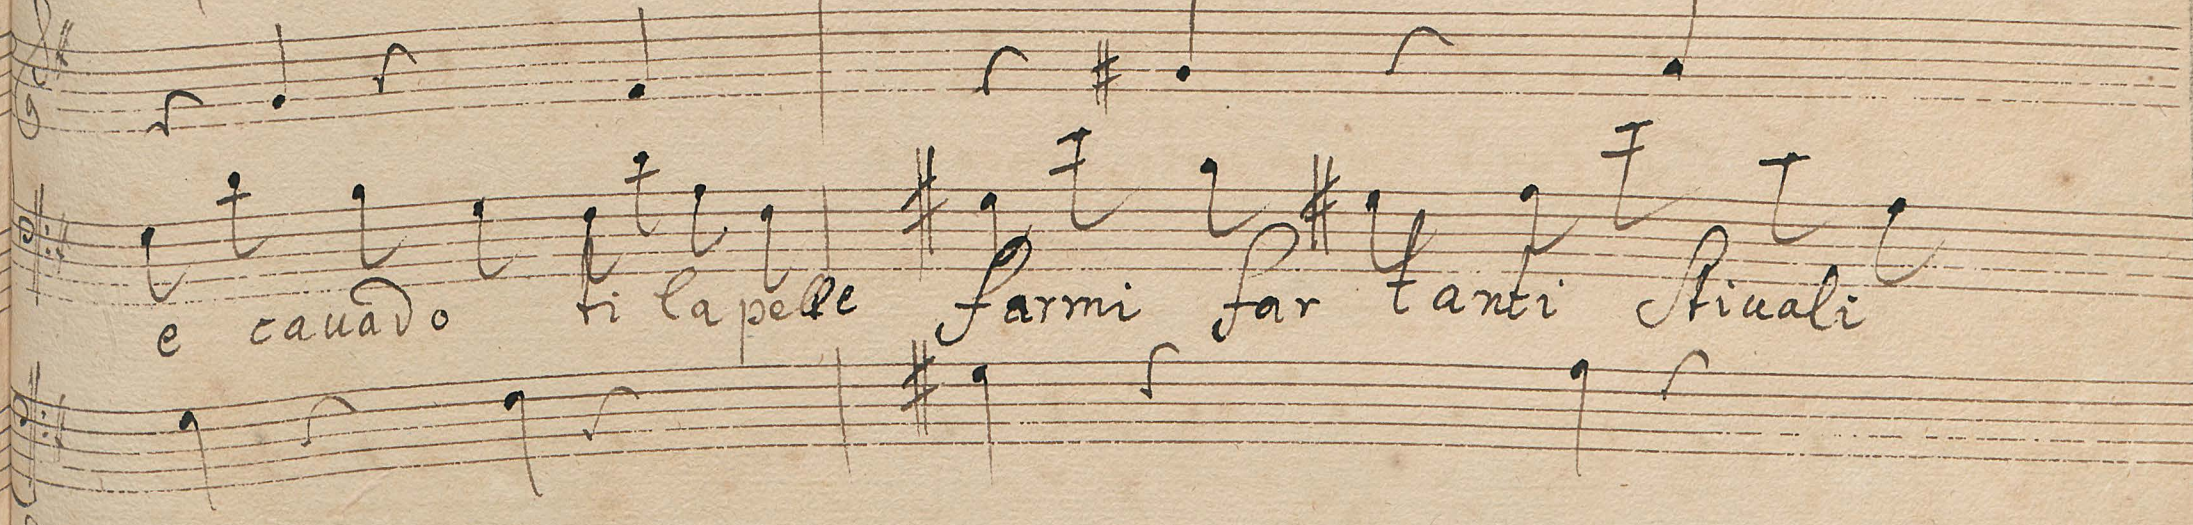 e cauado ti la pelle farmi far tanti stiuali